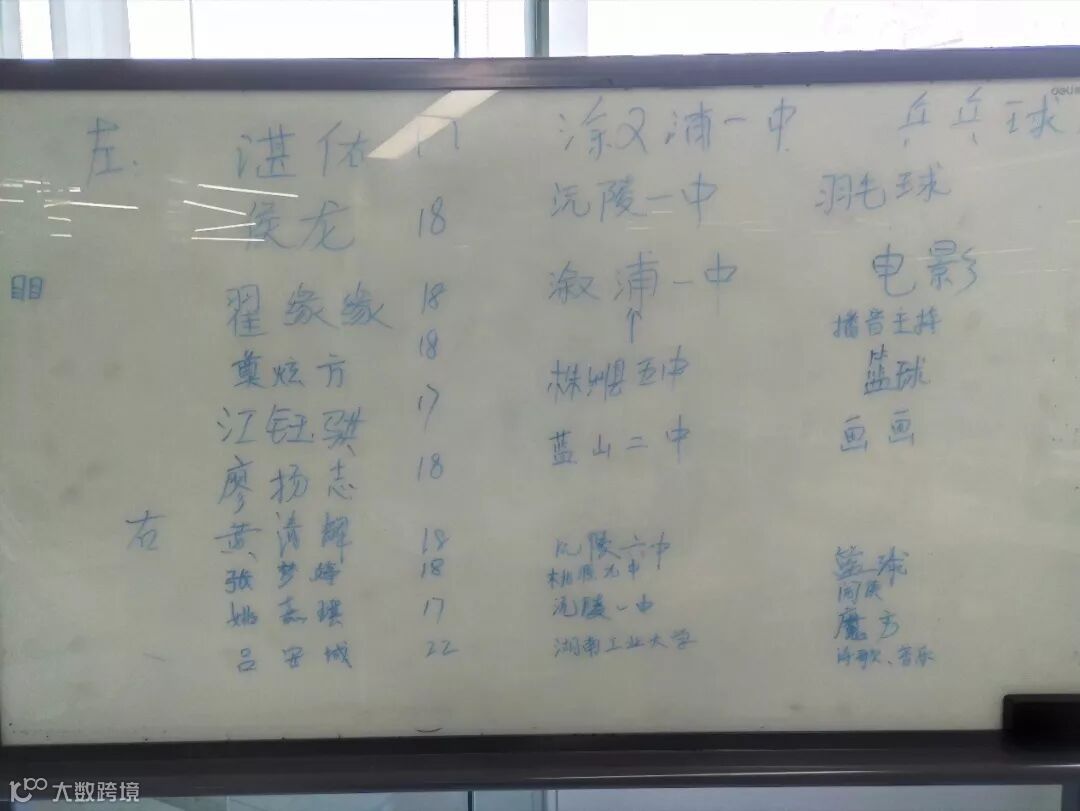 左 湛佑 17 溆浦一中 乒乓球
侯龙 18 沅陵一中 羽毛球
翟缘缘 18 溆浦一中 电影
炫方 18 播音主持
江钰骐 17 株洲县五中 篮球
廖扬志 18 蓝山二中 画画
右 黄清辉 18 沅陵六中 篮球
张梦婷 18 桃源九中 阅读
姚志琪 17 沅陵一中 魔方
吕安城 22 湖南工业大学 诗歌、音乐
大数跨境